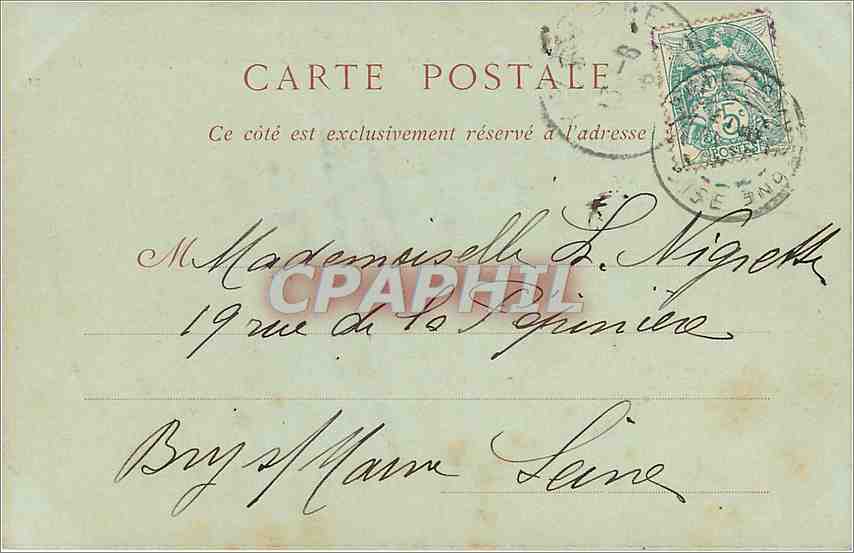 CARTE POSTALE
Ce côté est exclusivement réservé à l'adresse
5c
POSTES
M Mademoiselle L. Nigrette
CPAPHIL
19 rue de la Pépinière
Bry s/Marne Seine